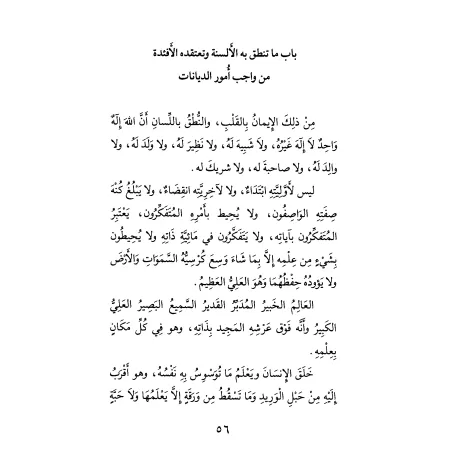 باب ما تنطق به الأَلسنة وتعتقده الأَفئدة
من واجب أُمور الديانات
مِنْ ذلِكَ الإِيمانُ بالقَلْبِ، والنُّطْقُ باللِّسانِ أَنَّ اللهَ إِلَهٌ
وَاحِدٌ لاَ إِلَهَ غَيْرُهُ، ولاَ شَبِيهَ لَهُ، ولا نَظِيرَ لَهُ، ولا وَلَدَ لَهُ، ولا
والِدَ لَهُ، ولا صاحبةَ له، ولا شريكَ له.
ليس لأَوَّلِيَّتِهِ ابْتِدَاءٌ، ولا لآخِرِيَّتِهِ انقِضَاءٌ، ولا يَبْلُغُ كُنْهَ
صِفَتِهِ الوَاصِفُون، ولا يُحِيطُ بأَمْرِهِ المُتَفَكِّرُون، يَعْتَبِرُ
المُتفَكِّرُون بآياتِهِ، ولا يَتَفَكَّرُون في مَائِيَّةِ ذَاتِهِ ولا يُحِيطُون
بِشَيْءٍ مِن عِلْمِه إِلاَّ بِمَا شَاءَ وَسِعَ كُرْسِيُّهُ السَّمَوَاتِ وَالأَرْضَ
ولا يَؤودُهُ حِفْظُهُمَا وَهُوَ العَلِيُّ العَظِيمُ.
العَالِمُ الخَبِيرُ المُدَبِّرُ القَدِيرُ السَّمِيعُ البَصِيرُ العَلِيُّ
الكَبِيرُ وَأَنَّه فَوْقَ عَرْشِهِ المَجِيد بِذَاتِهِ، وهو فِي كُلِّ مَكَانٍ
بِعِلْمِهِ.
خَلَقَ الإِنْسَانَ ويَعْلَمُ مَا تُوَسْوِسُ بِهِ نَفْسُهُ، وهو أَقْرَبُ
إِلَيْهِ مِنْ حَبْلِ الْوَرِيدِ وَمَا تَسْقُطُ مِن وَرَقَةٍ إِلاَّ يَعْلَمُهَا وَلاَ حَبَّةٍ
٥٦